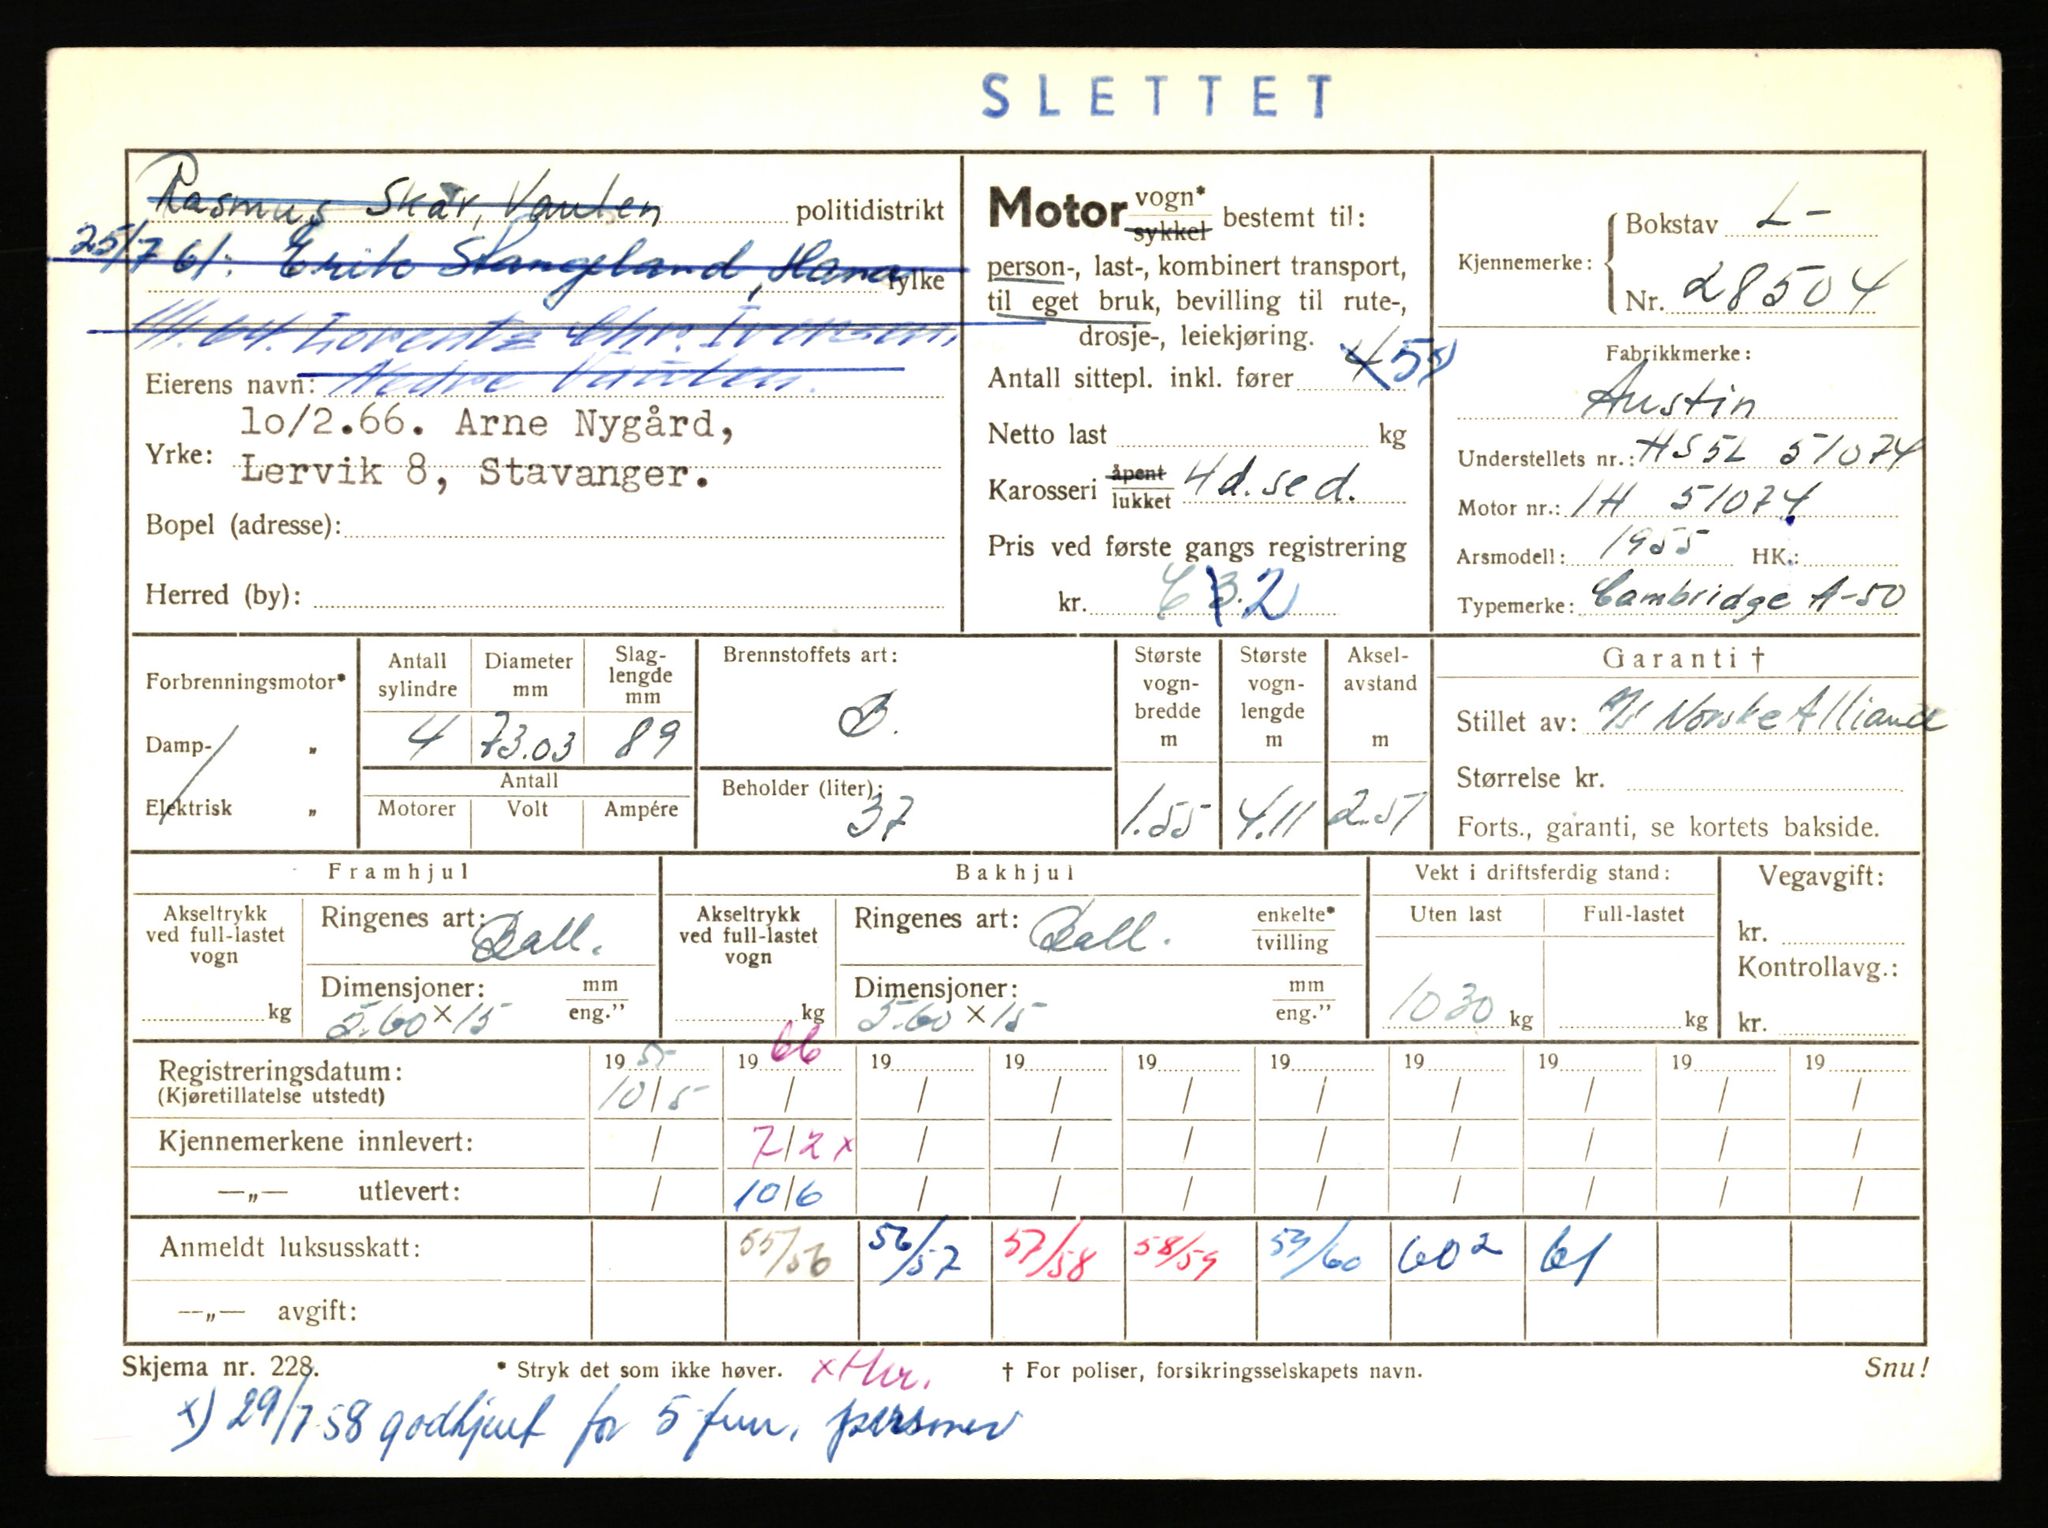 SLETTET
Rasmus Skår, Vaulen politidistrikt
25/7 61: Erik Stangeland, Hana fylke
Lorentz Chr. Iversen,
Eierens navn: Nedre Vaulen.
10/2.66. Arne Nygård,
Yrke:
Lervik 8, Stavanger.
Bopel (adresse):
Herred (by):
Motor vogn* sykkel bestemt til:
person-, last-, kombinert transport,
til eget bruk, bevilling til rute-,
drosje-, leiekjøring.
Antall sittepl. inkl. fører 4 5x)
Netto last kg
Karosseri åpent lukket 4d. sed.
Pris ved første gangs registrering
kr.
Kjennemerke: Bokstav L-
Nr. 28504
Fabrikkmerke:
Austin
Understellets nr.: HS5L 51074
Motor nr.: 1H 51074
Arsmodell: 1955 HK.:
Typemerke: Cambridge A-50
Forbrenningsmotor*
Damp- „
Elektrisk „
Antall sylindre Diameter mm Slag-lengde mm
4 73.03 89
Antall
Motorer Volt Ampére
Brennstoffets art:
B.
Beholder (liter):
37
Største vogn-bredde m Største vogn-lengde m Aksel-avstand m
1.55 4.11 2.51
Garanti †
Stillet av: A/S Norske Alliance
Størrelse kr.
Forts., garanti, se kortets bakside.
Framhjul
Akseltrykk ved full-lastet vogn
kg
Ringenes art: Ball.
Dimensjoner: mm eng.”
5.60 x 15
Bakhjul
Akseltrykk ved full-lastet vogn
kg
Ringenes art: Ball. enkelte* tvilling
Dimensjoner: mm eng.”
5.60 x 15
Vekt i driftsferdig stand:
Uten last Full-lastet
1030 kg kg
Vegavgift:
kr.
Kontrollavg.:
kr.
Registreringsdatum: 19 55 19 66 19 19 19 19 19 19 19 19
(Kjøretillatelse utstedt) 10/5 / / / / / / / / /
Kjennemerkene innlevert: / 7/2 x / / / / / / / /
—„— utlevert: / 10/6 / / / / / / / /
Anmeldt luksusskatt: 55/56 56/57 57/58 58/59 59/60 60 2 61
—„— avgift:
Skjema nr. 228. * Stryk det som ikke høver. † For poliser, forsikringsselskapets navn. Snu!
x) 29/7 58 godkjent for 5 personer